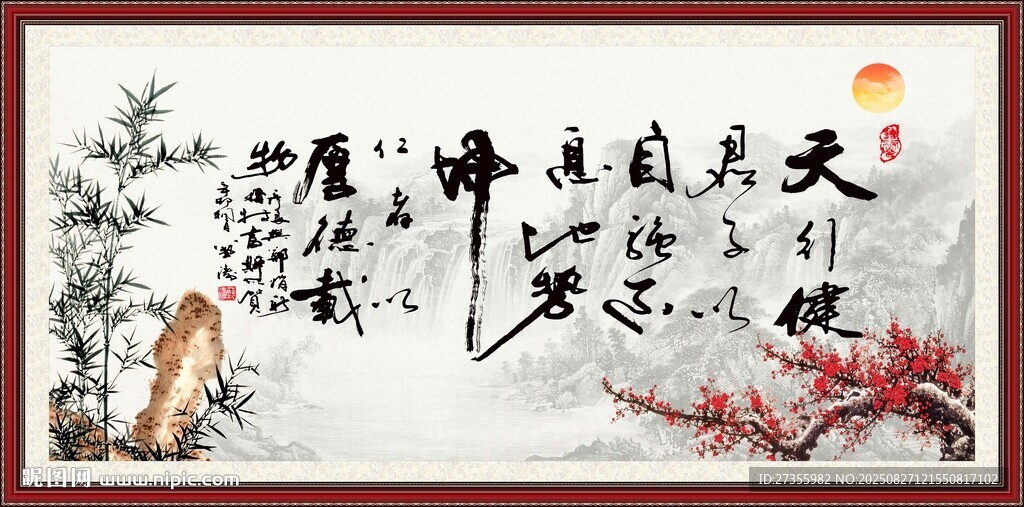 天行健
君子以
自強不
息地勢
坤
仁者以
厚德載
物
辛卯桐月
昵图网 www.nipic.com
ID:27355982 NO:20250827121550817102